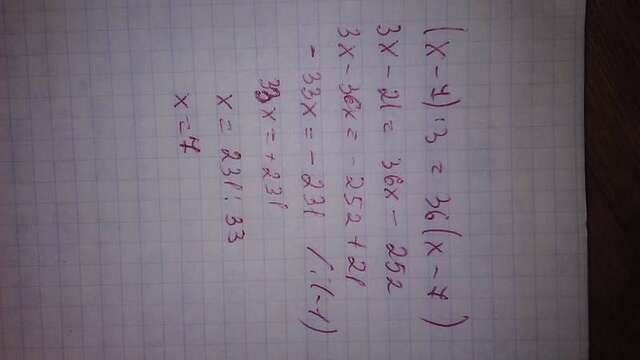 (x - 7) · 3 = 36(x - 7)
3x - 21 = 36x - 252
3x - 36x = - 252 + 21
- 33x = - 231 /:(-1)
33x = + 231
x = 231 : 33
x = 7